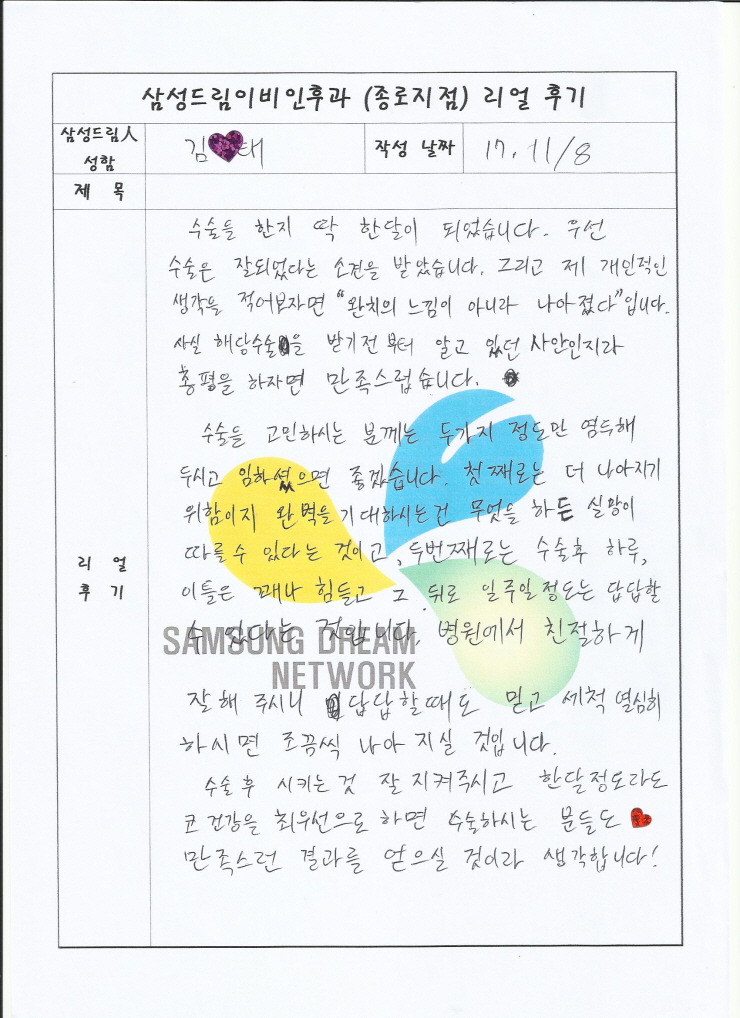 삼성드림이비인후과 (종로지점) 리얼 후기
삼성드림人 성함 김 태 작성 날짜 17. 11/8
제 목
리 얼 후 기
수술을 한지 딱 한달이 되었습니다. 우선
수술은 잘되었다는 소견을 받았습니다. 그리고 제 개인적인
생각을 적어보자면 "완치의 느낌이 아니라 나아졌다"입니다.
사실 해당수술을 받기전부터 알고 있던 사안인지라
총평을 하자면 만족스럽습니다.
수술을 고민하시는 분께는 두가지 정도만 염두해
두시고 임하셨으면 좋겠습니다. 첫째로는 더 나아지기
위함이지 완벽을 기대하시는건 무엇을 하든 실망이
따를수 있다는 것이고, 두번째로는 수술후 하루,
이틀은 꽤나 힘들고 그 뒤로 일주일정도는 답답할
수 있다는 것입니다. 병원에서 친절하게
SAMSUNG DREAM
NETWORK
잘해 주시니 답답할때도 믿고 세척 열심히
하시면 조끔씩 나아 지실 것입니다.
수술후 시키는것 잘지켜주시고 한달정도라도
코 건강을 최우선으로 하면 수술하시는 분들도
만족스런 결과를 얻으실 것이라 생각합니다!